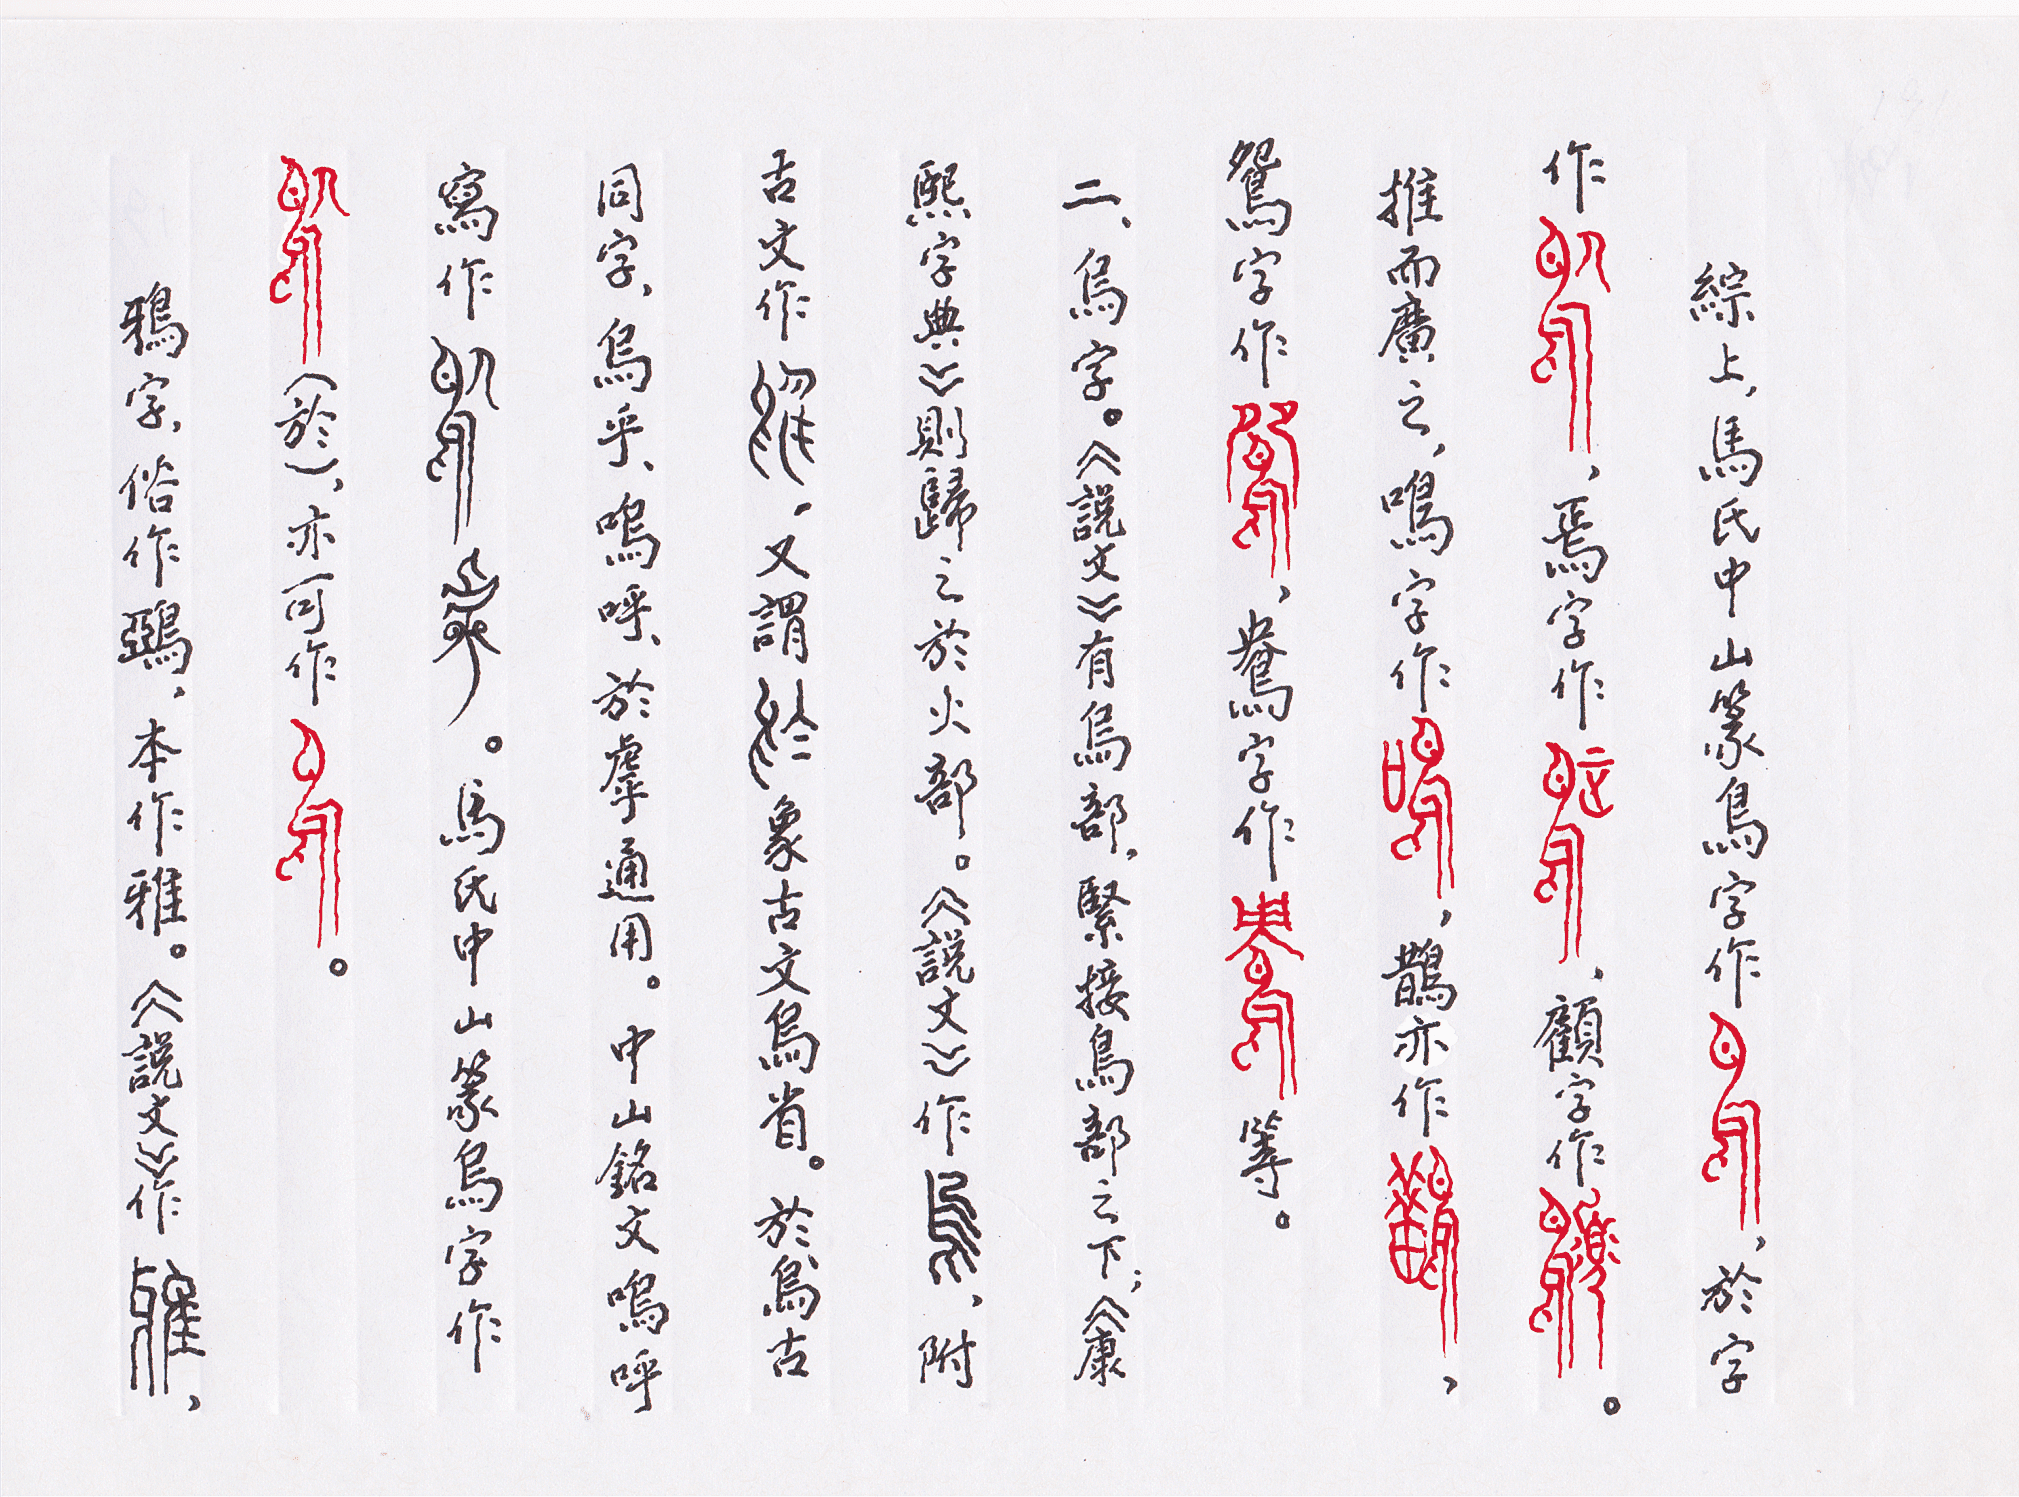 綜上，馬氏中山篆鳥字作，於字
作，焉字作，顧字作。
推而廣之，鳴字作，鵲亦作，
鴛字作，鴦字作等。
二、烏字。《説文》有烏部，緊接鳥部之下；《康
熙字典》則歸之於火部。《説文》作，附
古文作，又謂象古文烏省。於烏古
同字，烏乎、嗚呼、於虖通用。中山銘文嗚呼
寫作。馬氏中山篆烏字作
（於），亦可作。
鴉字，俗作鵶，本作雅。《説文》作，